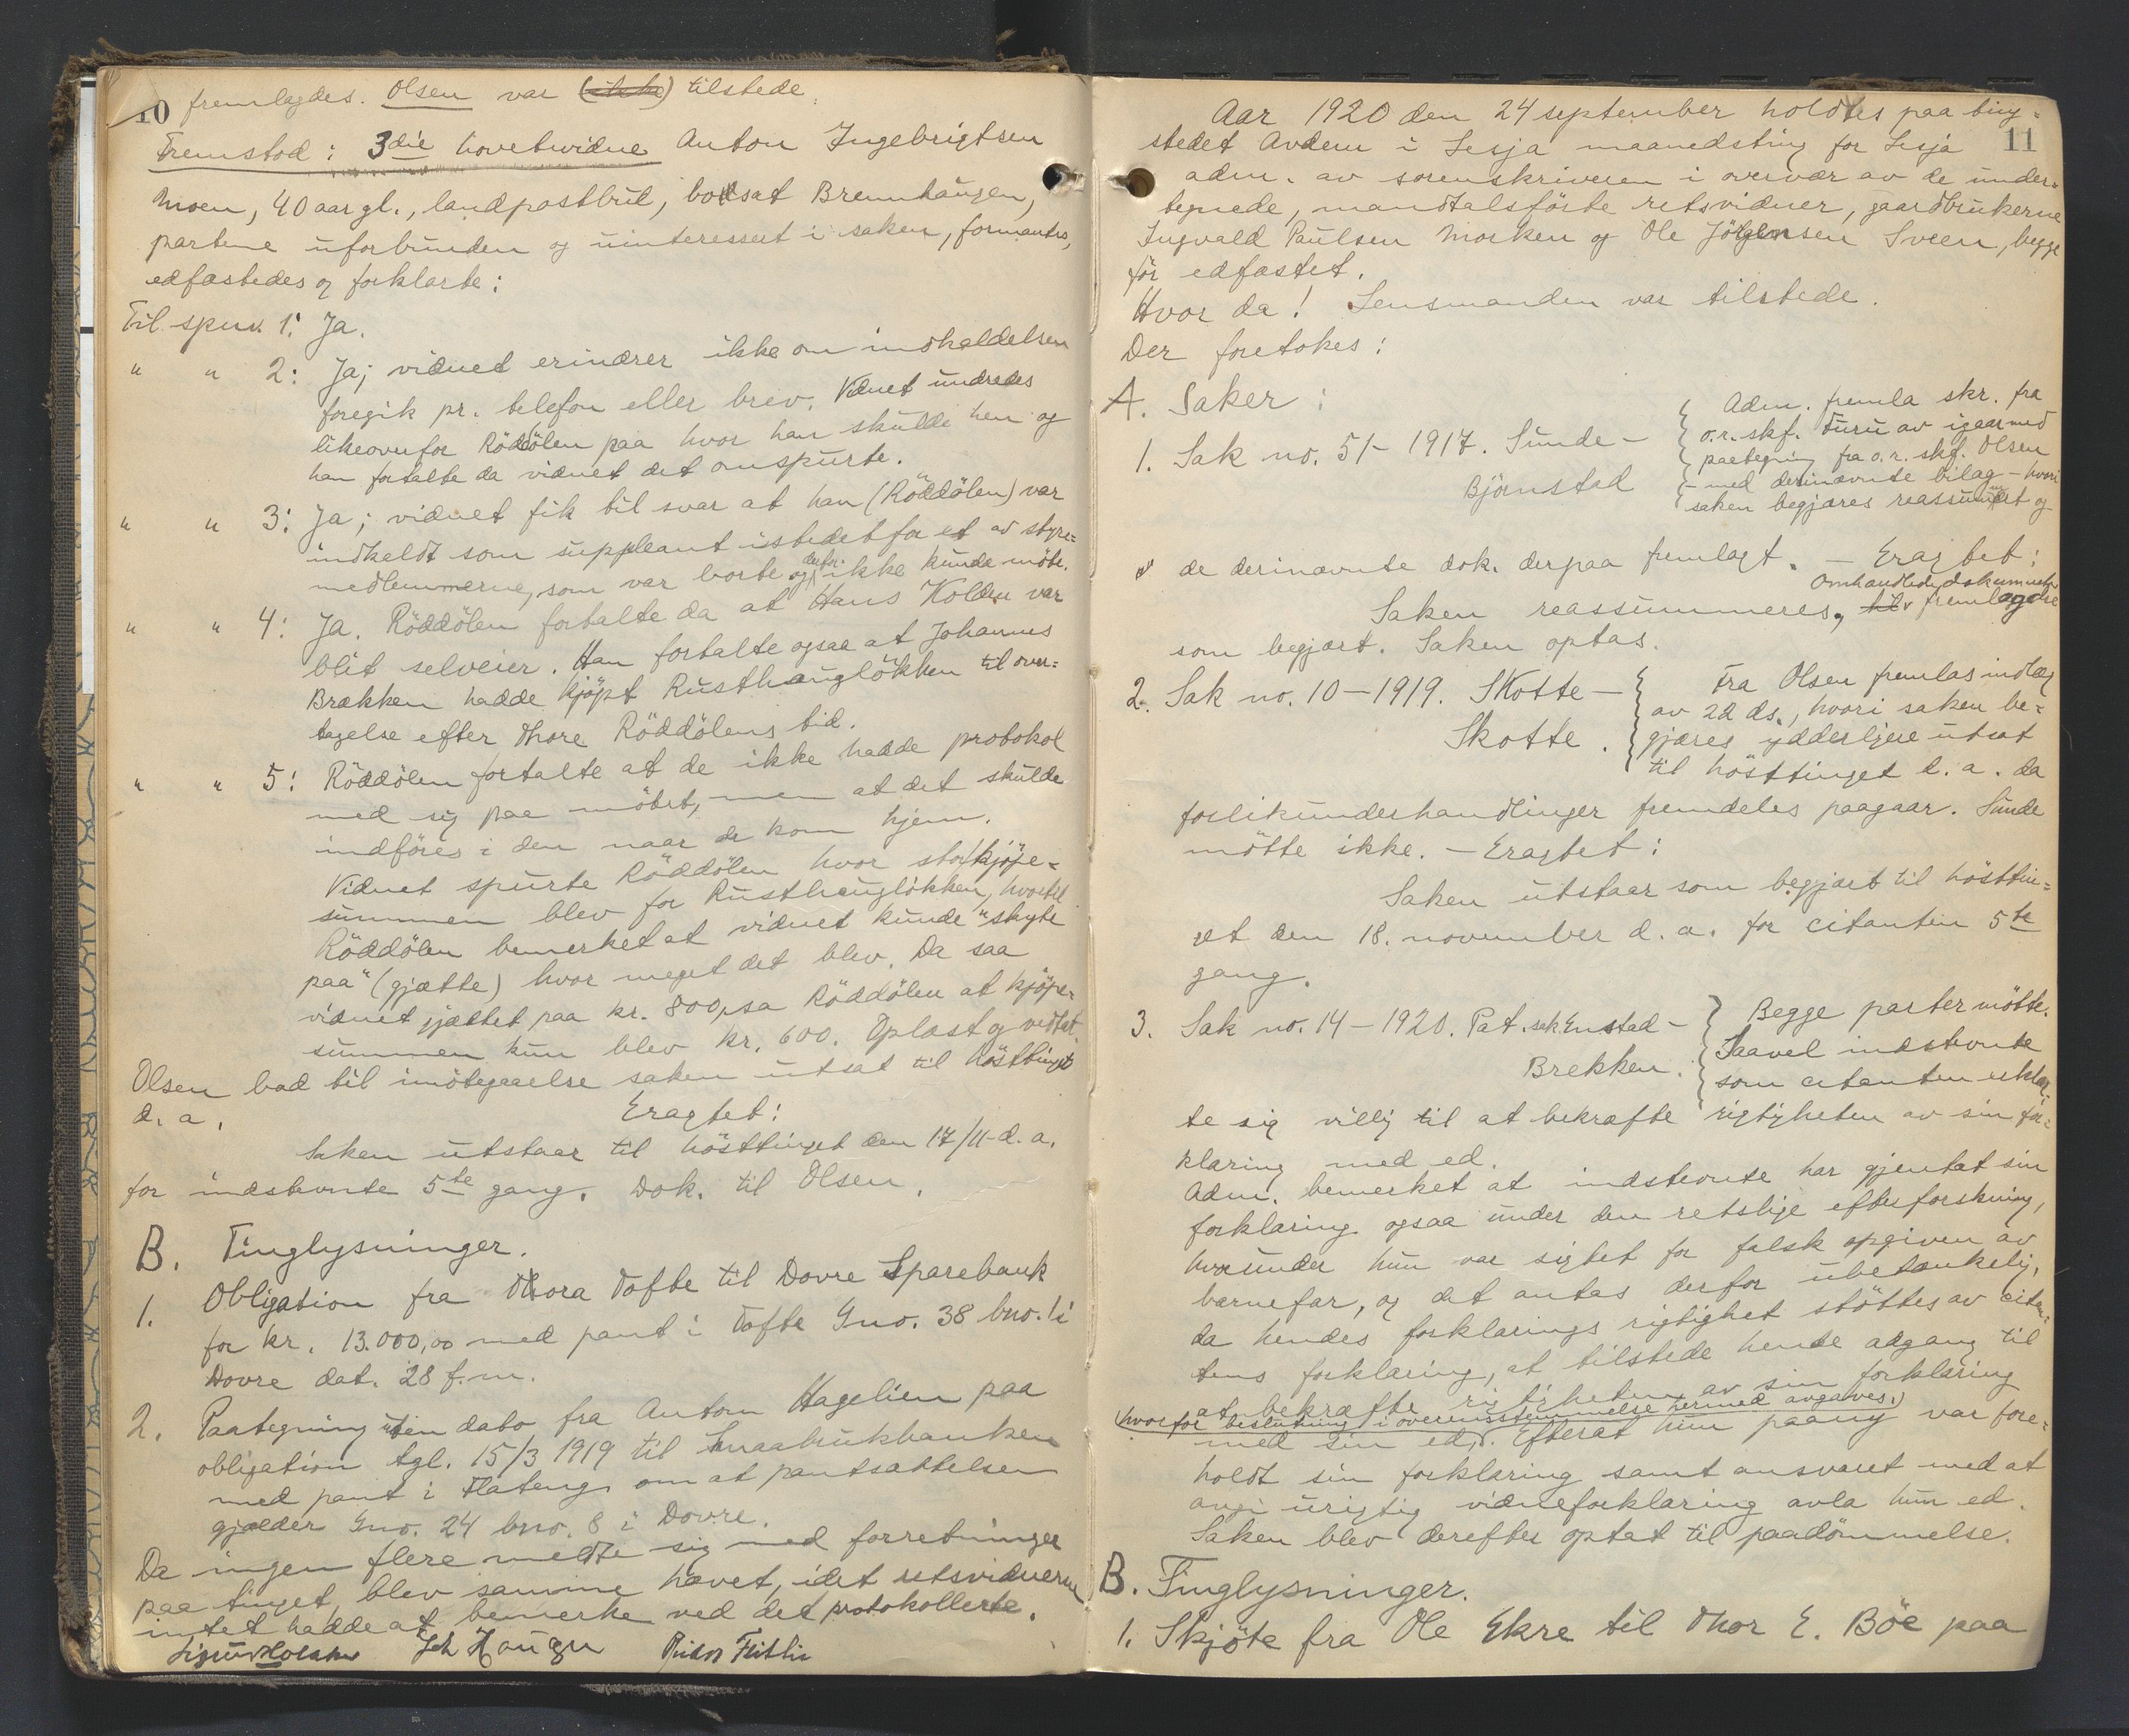 10
fremlagdes. Olsen var (ikke) tilstede.
Fremstod: 3die hovetvidne Anton Ingebrigtsen
Moen, 40 aar gl., landpostbud, bosat Brennhaugen,
partene uforbunden og uinteressert i saken, formantes,
edfæstedes og forklarte:
Til spm. 1: Ja.
" " 2: Ja; vidnet erindrer ikke om indkaldelsen
foregik pr. telefon eller brev. Vidnet undredes
likeoverfor Röddölen paa hvor han skulde hen og
han fortalte da vidnet det omspurte.
" " 3: Ja; vidnet fik til svar at han (Röddölen) var
indkaldt som suppleant istedetfor et av styre=
medlemmerne, som var borte og derfor ikke kunde möte.
" " 4: Ja. Röddölen fortalte da at Hans Kolden var
blit selveier. Han fortalte ogsaa at Johannes
Brækken hadde kjöpt Rusthauglökken til over=
tagelse efter Thore Röddölens tid.
" " 5: Röddölen fortalte at de ikke hadde protokol
med sig paa mötet, men at det skulde
indföres i den naar de kom hjem.
Vidnet spurte Röddölen hvor stor kjöpe=
summen blev for Rusthauglökken, hvortil
Röddölen bemerket at vidnet kunde "skyte
paa" (gjætte) hvor meget det blev. Da saa
vidnet gjættet paa kr. 800, sa Röddölen at kjöpe=
summen kun blev kr. 600. Oplæst og vedtat.
Olsen bad til imötegaaelse saken utsat til hösttinget
d. a. Eragtet:
Saken utstaar til hösttinget den 17/11 d. a.
for indstevnte 5te gang. Dok. til Olsen.
B. Tinglysninger.
1. Obligation fra Thora Tofte til Dovre Sparebank
for kr. 13.000,00 med pant i Tofte Gno. 38 bno. 1 i
Dovre dat. 28 f. m.
2. Paategning uten dato fra Anton Hagelien paa
obligation tgl. 15/3 1919 til Smaabrukbanken
med pant i Flateng om at pantsættelsen
gjælder Gno. 24 bno. 8 i Dovre.
Da ingen flere meldte sig med forretninger
paa tinget, blev samme hævet, idet retsvidnerne
intet hadde at bemerke ved det protokollerte.
Joh Haugen
11
Aar 1920 den 24 september holdtes paa ting=
stedet Avdem i Lesja maanedsting for Lesja
adm. av sorenskriveren i overvær av de under=
tegnede, mandtalsförte retsvidner, gaardbrukerne
Ingvald Paulsen Morken og Ole Jörgensen Sveen, begge
för edfæstet.
Hvor da! Lensmanden var tilstede.
Der foretokes:
A. Saker:
1. Sak no. 51-1917. Sunde-
Björnstad
Adm. fremla skr. fra
o.r.skf. Furu av igaar med
paategning fra o.r.skf. Olsen
med derinævnte bilag - hvori
saken begjæres reassumert og
de derinævnte dok. derpaa fremlagt. - Eragtet:
Saken reassummeres, Omhandlede dokumenter fremlagdes
som begjært. Saken optas.
2. Sak no. 10-1919. Skotte-
Skotte.
Fra Olsen fremlas indlæg
av 22 ds., hvori saken be=
gjæres ydderligere utsat
til hösttinget d. a. da
forlikunderhandlinger fremdeles paagaar. Sunde
mötte ikke. - Eragtet:
Saken utstaar som begjært til hösttin=
get den 18. november d. a. for citanten 5te
gang.
3. Sak no. 14-1920. Pat.sak Enstad-
Brekken.
Begge parter mötte.
Saavel indstevnte
som citanten erklær=
te sig villig til at bekræfte rigtigheten av sin for=
klaring med ed.
Adm. bemerket at indstevnte har gjentat sin
forklaring ogsaa under den retslige efterforskning,
hvorunder hun var sigtet for falsk opgiven av
barnefar, og det antas derfor ubetænkelig,
da hendes forklarings rigtighet stöttes av citan=
tens forklaring, at tilstede hende adgang til
at bekræfte rigtigheten av sin forklaring
(hvorfor beslutning i overensstemmelse hermed avgaves.)
med sin ed. Efterat hun paany var fore=
holdt sin forklaring samt ansvaret med at
avgi urigtig vidneforklaring avla hun ed.
Saken blev derefter optat til paadömmelse.
B. Tinglysninger.
1. Skjöte fra Ole Ekre til Thor E. Böe paa